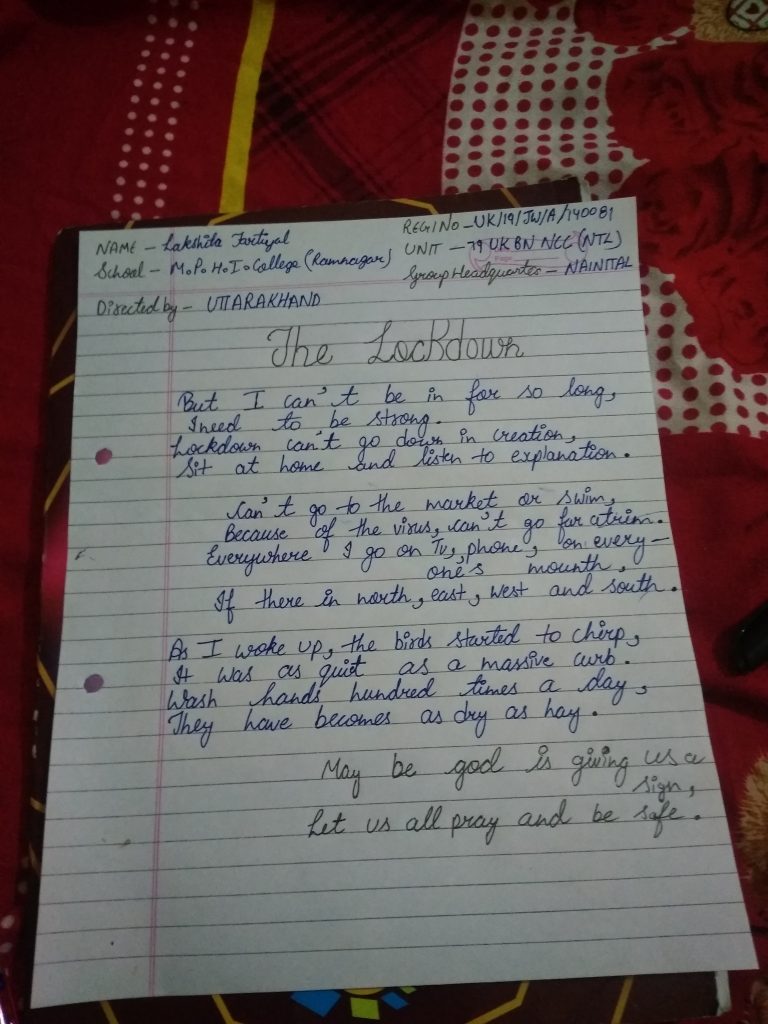 NAME - Lakshita Fartiyal
REGI NO - UK/19/JW/A/140081
School - M.P.H.I. College (Ramnagar)
UNIT - 79 UK BN NCC (NTL)
Group Headquartes - NAINITAL
Directed by - UTTARAKHAND
The Lockdown
But I can't be in for so long,
I need to be strong.
Lockdown can't go down in creation,
Sit at home and listen to explanation.
Can't go to the market or swim,
Because of the virus, can't go for a trim.
Everywhere I go on Tv, phone, on every-
one's mounth,
If there in north, east, west and south.
As I woke up, the birds started to chirp,
It was as quiet as a massive curb.
Wash hands hundred times a day,
They have becomes as dry as hay.
May be god is giving us a
sign,
Let us all pray and be safe.